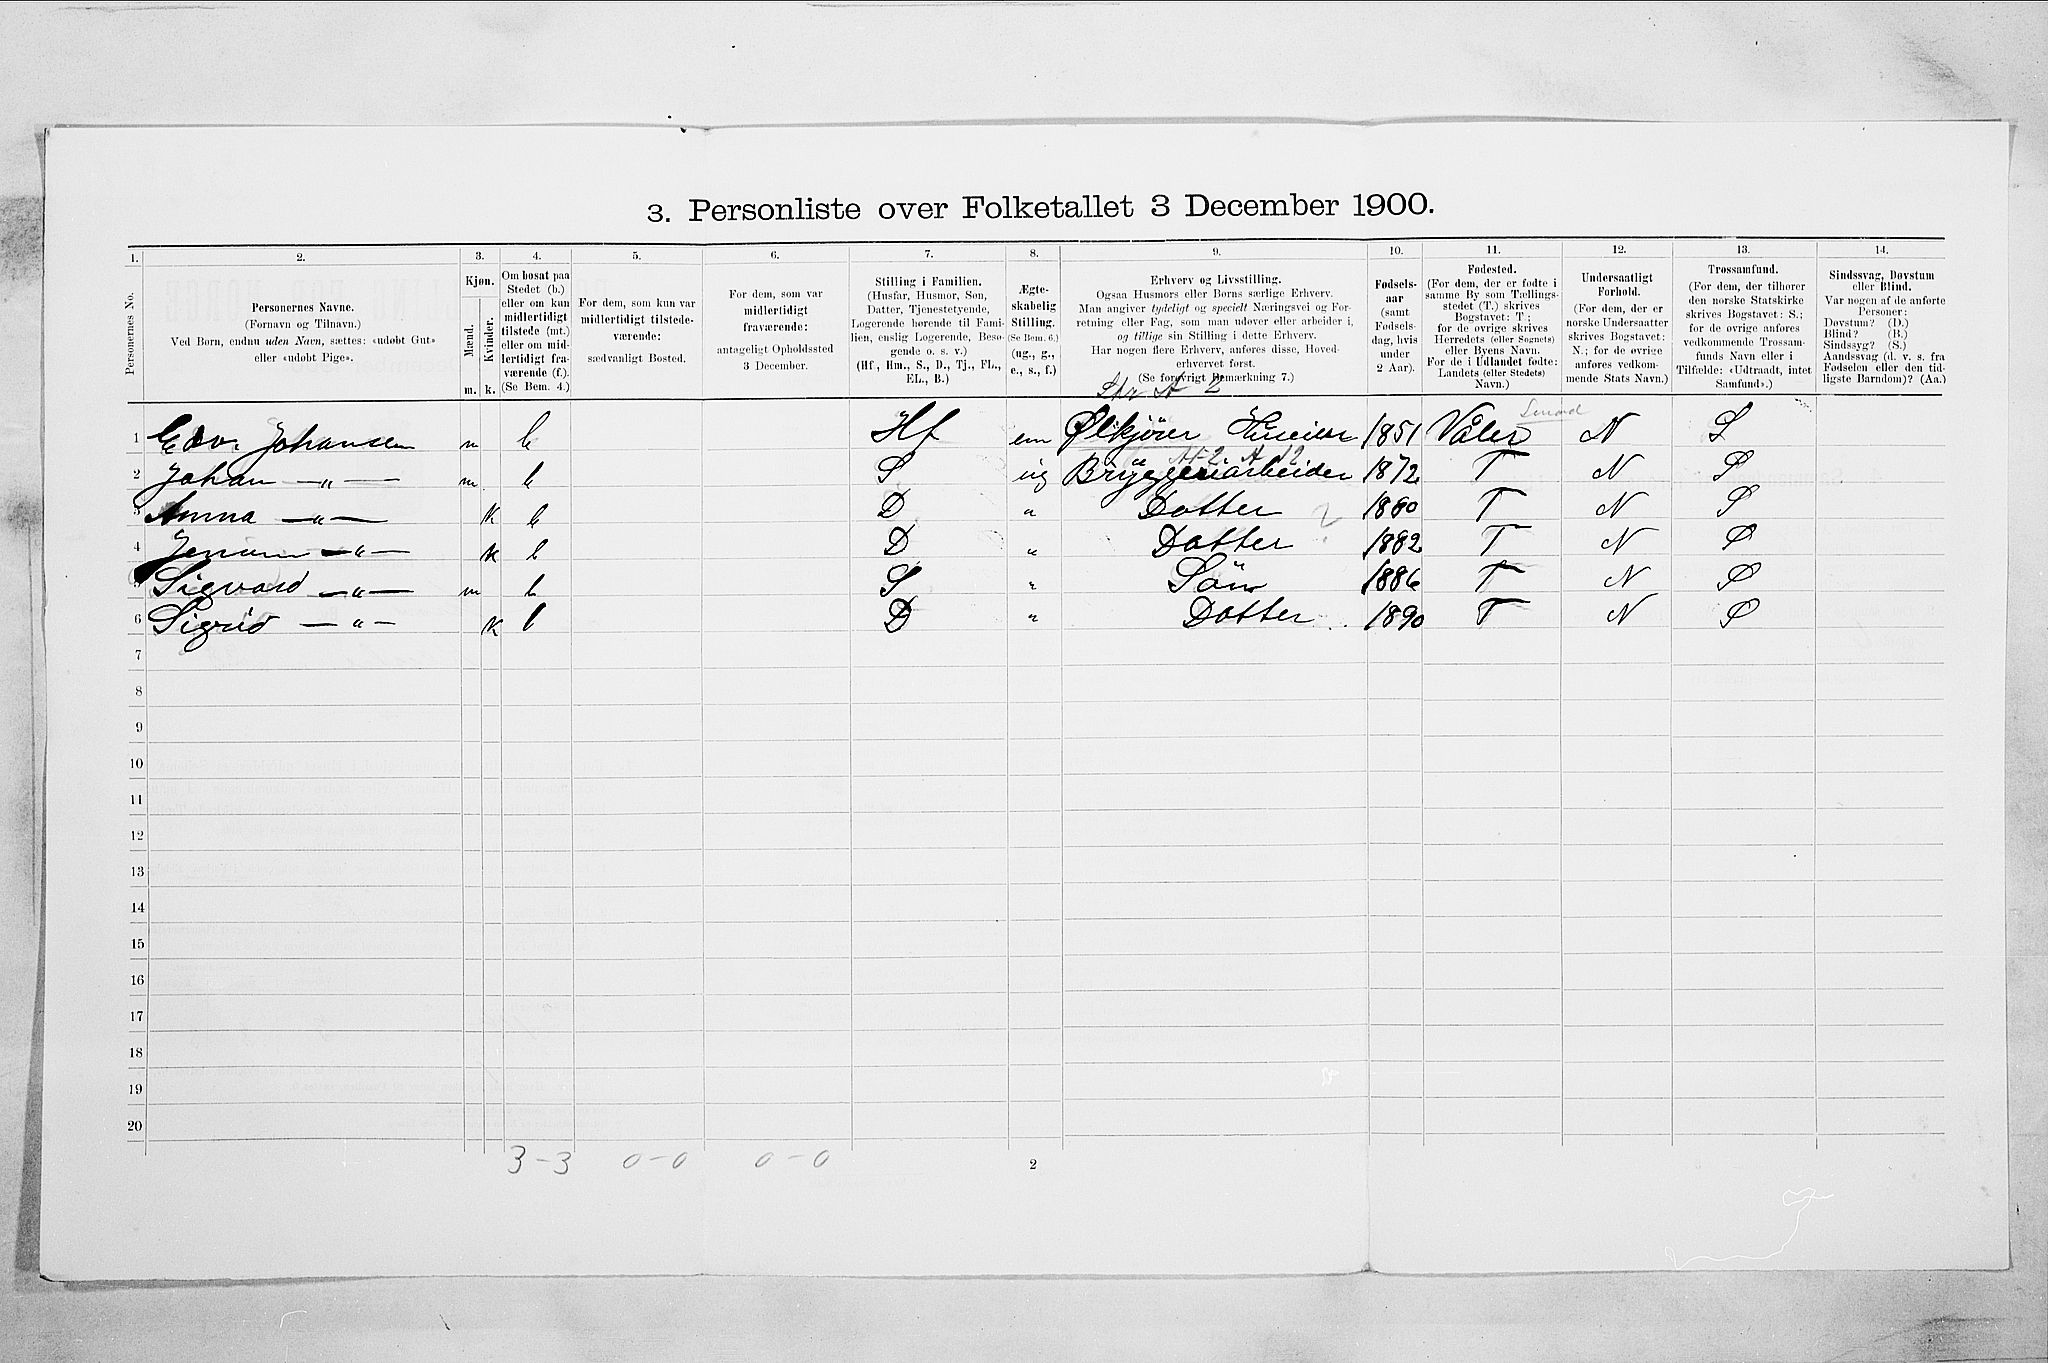 3. Personliste over Folketallet 3 December 1900.
1. 2. 3. 4. 5. 6. 7. 8. 9. 10. 11. 12. 13. 14.
Personernes No.
Personernes Navne.
(Fornavn og Tilnavn.)
Ved Børn, endnu uden Navn, sættes: «udøbt Gut»
eller «udøbt Pige».
Kjøn.
Mænd.
Kvinder.
m. k.
Om bosat paa
Stedet (b.)
eller om kun
midlertidigt
tilstede (mt.)
eller om mid-
lertidigt fra-
værende (f.).
(Se Bem. 4.)
For dem, som kun var
midlertidigt tilstede-
værende:
sædvanligt Bosted.
For dem, som var
midlertidigt
fraværende:
antageligt Opholdssted
3 December.
Stilling i Familien.
(Husfar, Husmor, Søn,
Datter, Tjenestetyende,
Logerende hørende til Fami-
lien, enslig Logerende, Besø-
gende o. s. v.)
(Hf., Hm., S., D., Tj., FL.,
EL., B.)
Ægte-
skabelig
Stilling.
(Se Bem. 6.)
(ug., g.,
e., s., f.)
Erhverv og Livsstilling.
Ogsaa Husmors eller Børns særlige Erhverv.
Man angiver tydeligt og specielt Næringsvei og For-
retning eller Fag, som man udøver eller arbeider i,
og tillige sin Stilling i dette Erhverv.
Har nogen flere Erhverv, anføres disse, Hoved-
erhvervet først.
(Se forøvrigt Bemærkning 7.)
Fødsels-
aar
(samt
Fødsels-
dag, hvis
under
2 Aar).
Fødested.
(For dem, der er fødte i
samme By som Tællings-
stedet (T.) skrives
Bogstavet: T.;
for de øvrige skrives
Herredets (eller Sognets)
eller Byens Navn.
For de i Udlandet fødte:
Landets (eller Stedets)
Navn.)
Undersaatligt
Forhold.
(For dem, der er
norske Undersaatter
skrives Bogstavet:
N.; for de øvrige
anføres vedkom-
mende Stats Navn.)
Trossamfund.
(For dem, der tilhører
den norske Statskirke
skrives Bogstavet: S.;
for de øvrige anføres
vedkommende Trossam-
funds Navn eller i
Tilfælde: «Udtraadt, intet
Samfund».)
Sindssvag, Døvstum
eller Blind.
Var nogen af de anførte
Personer:
Døvstum? (D.)
Blind? (B.)
Sindssyg? (S.)
Aandssvag (d. v. s. fra
Fødselen eller den tid-
ligste Barndom)? (Aa.)
1 Edv. Johansen m b Hf em Ølkjører 1851 Våler N S
2 Johan —„— m b S ug Bryggeriarbeider 1872 T N S
3 Anna —„— K b D „ Datter 1880 T N S
4 —„— K b D „ Datter 1882 T N S
5 Sigvard —„— m b S „ Søn 1886 T N S
6 Sigrid —„— K b D „ Datter 1890 T N S
7
8
9
10
11
12
13
14
15
16
17
18
19
20
3-3 0-0 0-0
2